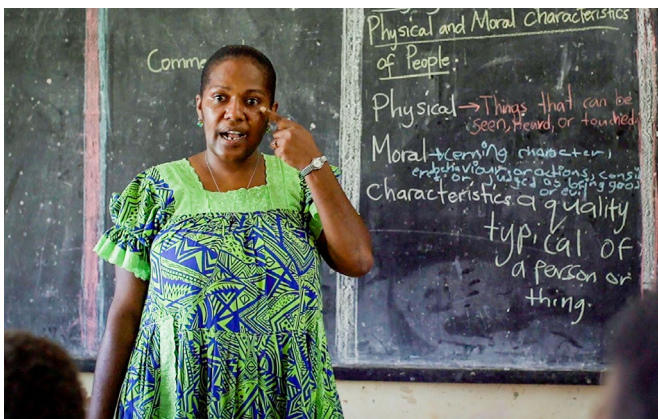 Comme
Physical and Moral Characteristics
of People.
Physical → Things that can be
seen, Heard, or touched,
Moral → character,
behaviours or actions,
as being good
or evil
Characteristics: a quality
typical of
a person or
thing.